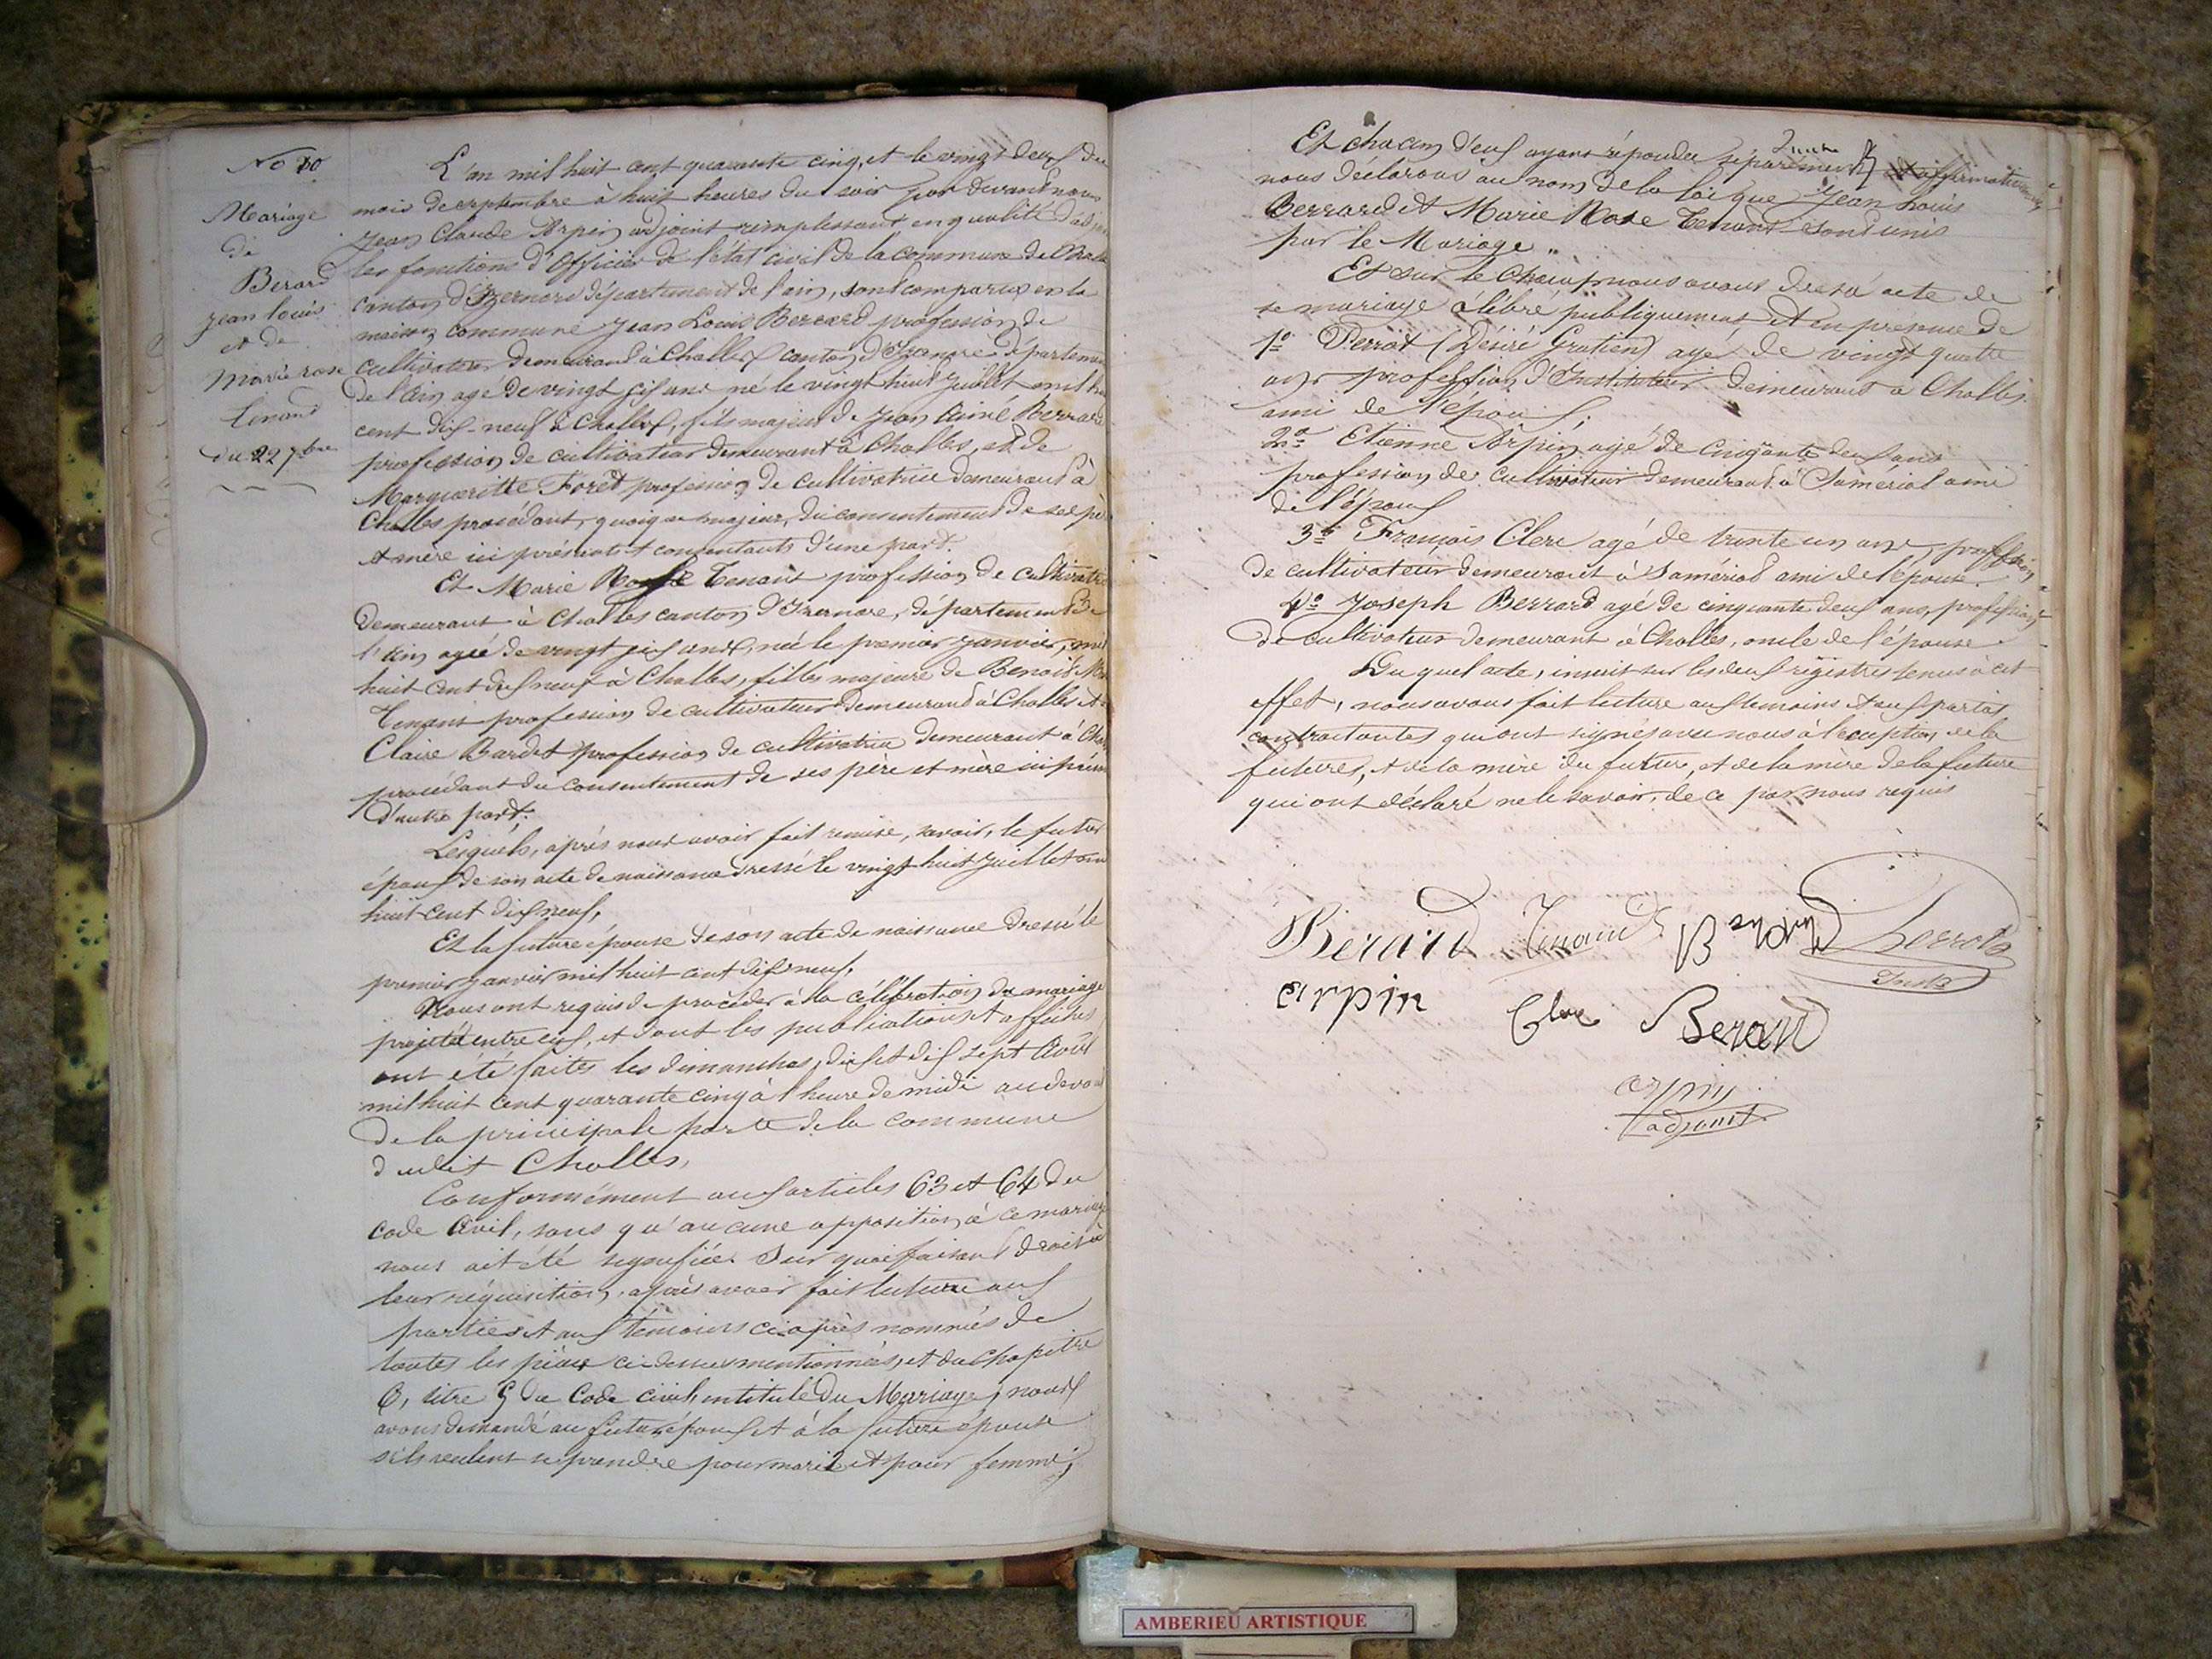 No 10
Mariage
de
Berard
jean louis
et de
marie rose
Tenand
du 22 7bre
L'an mil huit cent quarante cinq, et le vingt deux du
mois de septembre à huit heures du soir par devant nous
Jean Claude Arpin adjoint remplissant en qualité d'adjoint
les fonctions d'officier de l'état civil de la commune de
canton d'Izernore département de l'ain, sont comparus en la
maison commune Jean Louis Berrard profession de
cultivateur demeurant à Challes canton d' département
De l'ain agé de vingt six ans né le vingt huit juillet mil huit
cent dix-neuf à Challes, fils majeur de Jean Aimé Berrard
profession de cultivateur demeurant à Challes, et de
Margueritte Foret profession de cultivatrice demeurant à
Challes procédant, quoique majeur, du consentement de ses père
et mère ici présents et consentants d'une part.
Et Marie Rose Tenant profession de cultivatrice
Demeurant à Challes canton d'Izernore, département de
l'ain agée de vingt six ans, née le premier janvier, mil
huit cent dix neuf à Challes, filles majeure de Benoit
Tenant profession de cultivateur demeurand à Challes et
Claire Bardet profession de cultivatrice demeurant à
procédant du consentement de ses père et mère ici
D'autre part.
Lesquels, après nous avoir fait remise, savoir, le futur
époux de son acte de naissance dressé le vingt huit juillet
huit cent dix neuf,
Et la future épouse de son acte de naissance dressé le
premier janvier mil huit cent dix neuf,
Nous ont requis de procéder à la célébration du mariage
projeté entre eux, et dont les publications et affiches
ont été faites les dimanches, dix et dix sept Août
mil huit cent quarante cinq à l'heure de midi au devant
De la principale porte de la commune
dudit Challes,
Conformément aux articles 63 et 64 du
code Civil, sans qu'aucune opposition à ce mariage
nous ait été signifiée. Sur quoi faisant droit à
leur réquisition, après avoir fait lecture aux
parties et aux témoins ci après nommés de
toutes les pièces ci dessus mentionnées, et du chapitre
6, titre 5 du Code civil, intitulé Du Mariage, nous
avons demandé au futur époux et à la future épouse
s'ils veulent se prendre pour mari et pour femme;
Et chacun d'eux ayant répondu séparément et affirmativement
nous déclarons au nom de la loi que Jean Louis
Berrard et Marie Rose Tenant sont unis
par le Mariage „
Et sur le champ nous avons dressé acte de
se mariage célébré publiquement et en présence de
1o Perrot (Désiré Gratien) agé de vingt quatre
ans profession d'Instituteur demeurant à Challes
ami de l'époux;
2o Etienne Arpin agé de cinquante deux ans
profession de cultivateur demeurant à Samériat ami
de l'époux
3o François Clerc agé de trente un ans, profession
De cultivateur demeurant à Samériat ami de l'épouse.
4o Joseph Berrard agé de cinquante deux ans, profession
de cultivateur demeurant à Challes, oncle de l'épouse
Du quel acte, inscrit sur les deux régistres tenus à cet
effet, nous avons fait lecture aux témoins et aux parties
contractantes qui ont signés avec nous à l'exception de la
future, et de la mère du futur, et de la mère de la future
qui ont déclaré ne le savoir, de ce par nous requis
Berard Tenand Berard Perrot
Arpin Clerc Berard
arpin
adjoint
AMBERIEU ARTISTIQUE